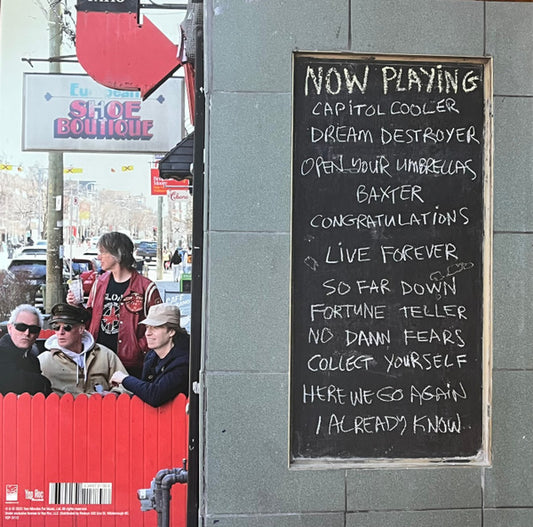 European
SHOE
BOUTIQUE
NOW PLAYING
CAPITOL COOLER
DREAM DESTROYER
OPEN YOUR UMBRELLAS
BAXTER
CONGRATULATIONS
LIVE FOREVER
SO FAR DOWN
FORTUNE TELLER
NO DAMN FEARS
COLLECT YOURSELF
HERE WE GO AGAIN
I ALREADY KNOW
Yep Roc